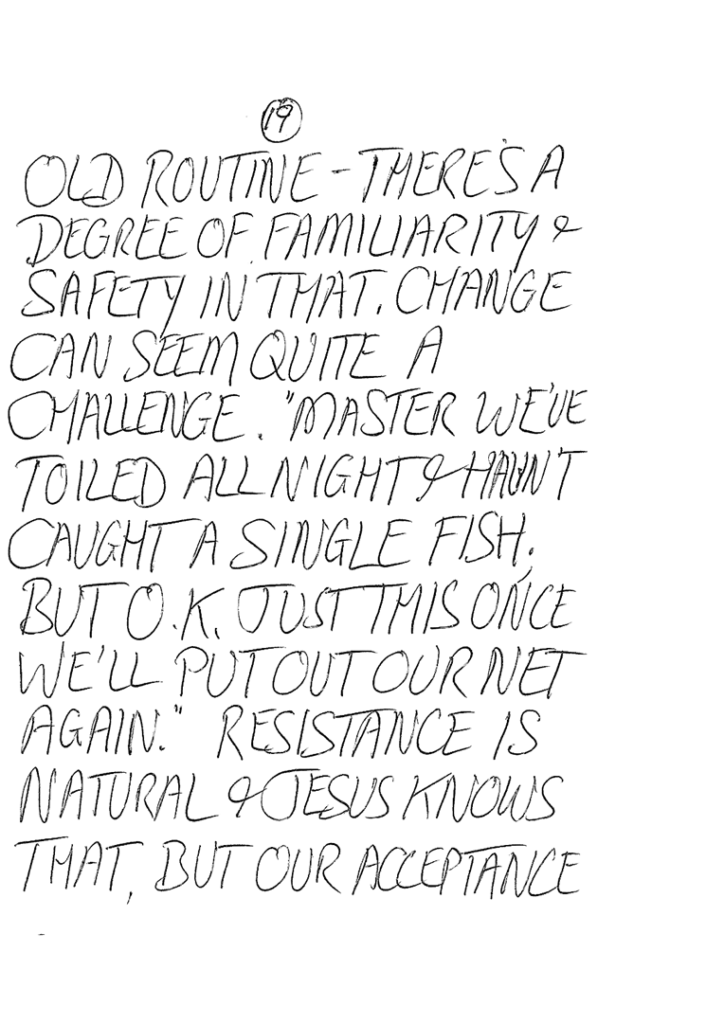 19
OLD ROUTINE - THERE'S A
DEGREE OF FAMILIARITY &
SAFETY IN THAT. CHANGE
CAN SEEM QUITE A
CHALLENGE. "MASTER WE'VE
TOILED ALL NIGHT & HAVN'T
CAUGHT A SINGLE FISH.
BUT O.K. JUST THIS ONCE
WE'LL PUT OUT OUR NET
AGAIN." RESISTANCE IS
NATURAL & JESUS KNOWS
THAT, BUT OUR ACCEPTANCE